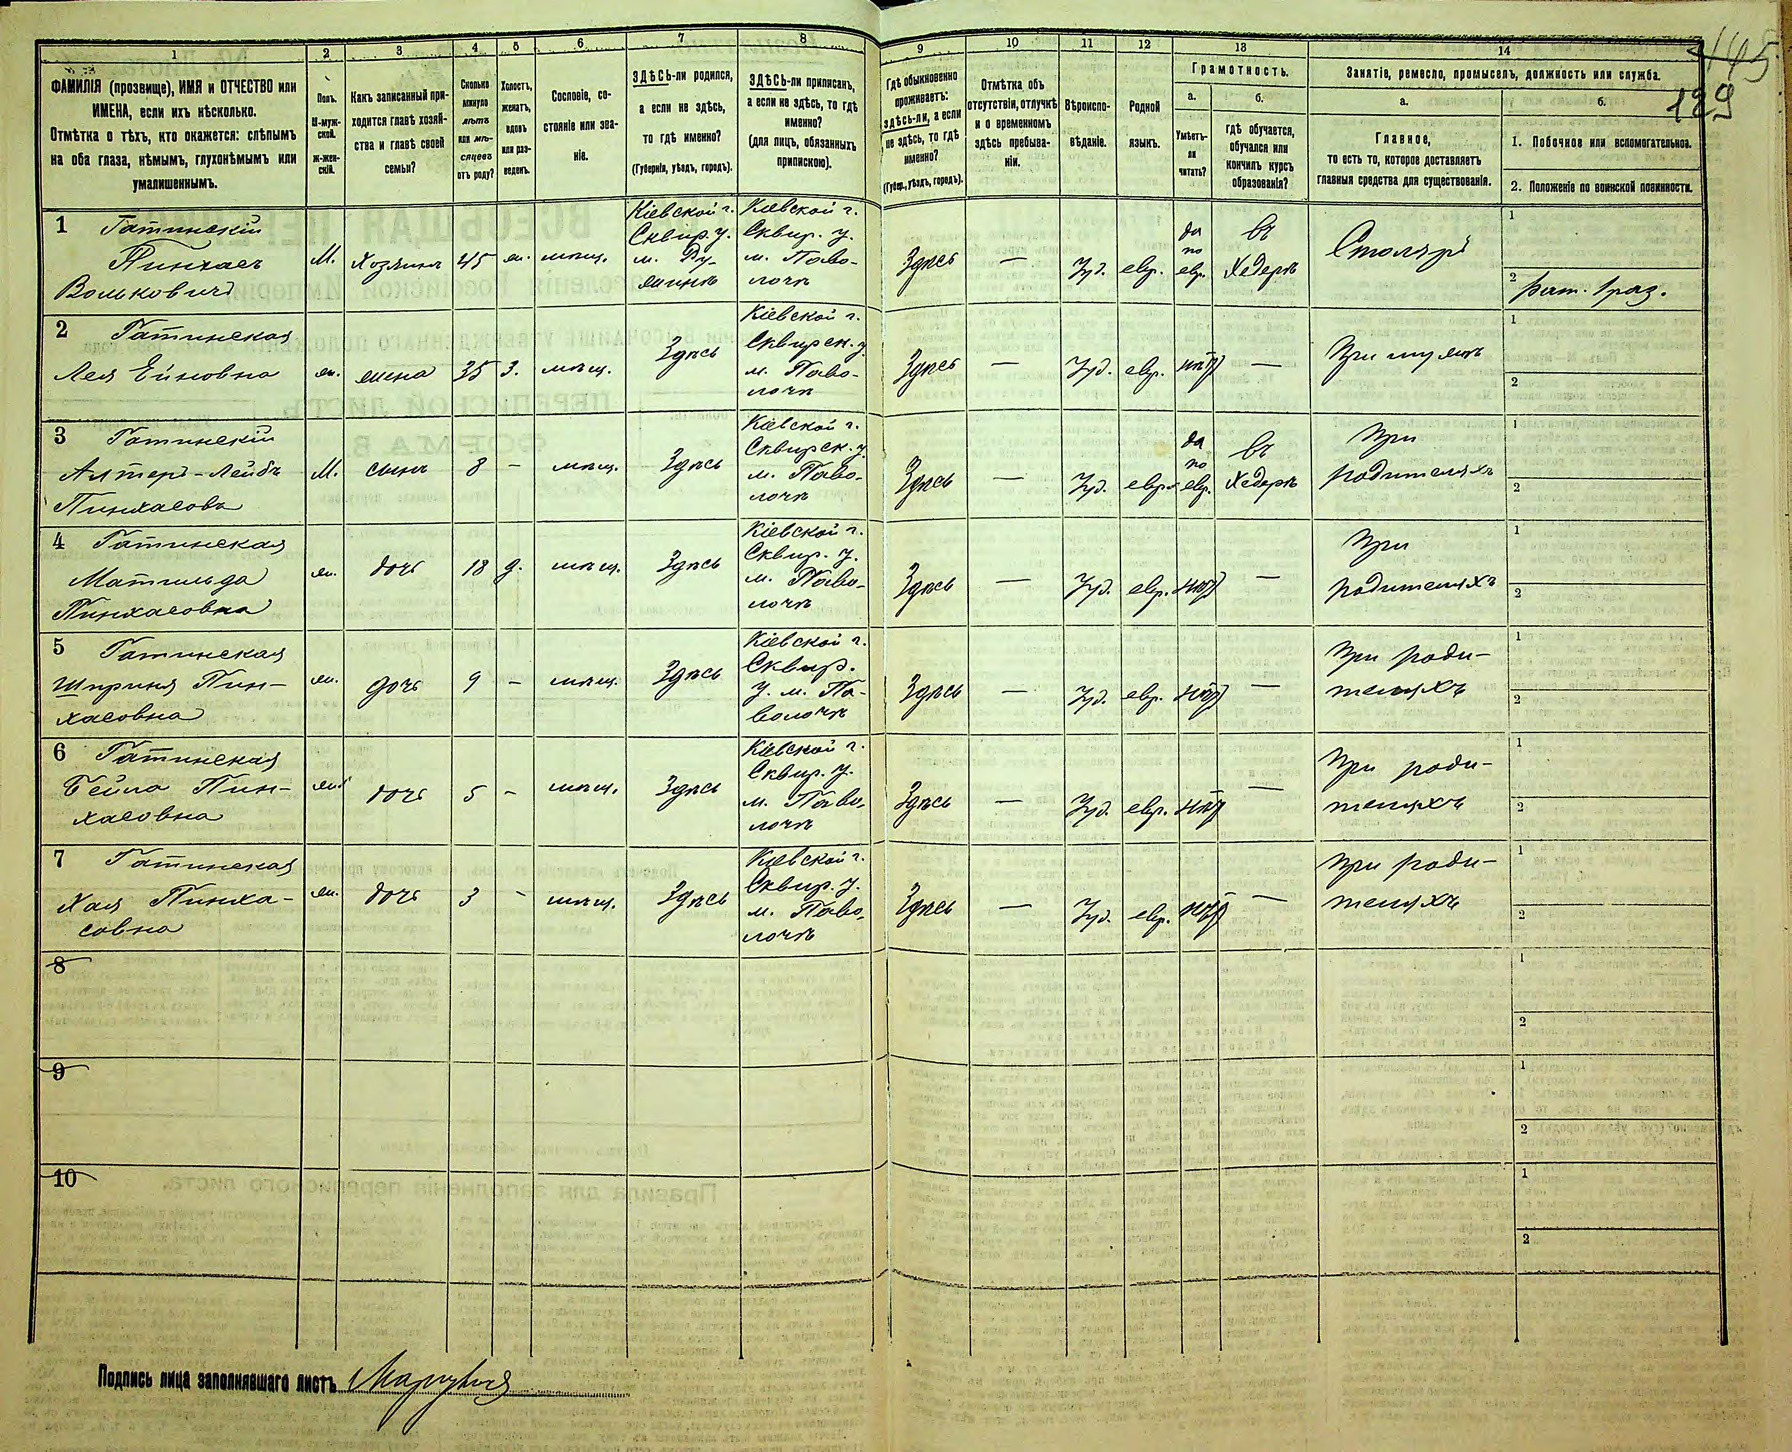 145
129
1
2
3
4
5
6
7
8
9
10
11
12
13
14
ФАМИЛІЯ (прозвище), ИМЯ и ОТЧЕСТВО или
ИМЕНА, если ихъ нѣсколько.
Отмѣтка о тѣхъ, кто окажется: слѣпымъ
на оба глаза, нѣмымъ, глухонѣмымъ или
умалишеннымъ.
Полъ.
М-муж-
ской.
Ж-жен-
скій.
Какъ записанный при-
ходится главѣ хозяй-
ства и главѣ своей
семьи?
Сколько
минуло
лѣтъ
или мѣ-
сяцевъ
отъ роду?
Холостъ,
женатъ,
вдовъ
или раз-
веденъ.
Сословіе, со-
стояніе или зва-
ніе.
ЗДѢСЬ-ли родился,
а если не здѣсь,
то гдѣ именно?
(Губернія, уѣздъ, городъ).
ЗДѢСЬ-ли приписанъ,
а если не здѣсь, то гдѣ
именно?
(для лицъ, обязанныхъ
припискою).
Гдѣ обыкновенно
проживаетъ:
здѣсь-ли, а если
не здѣсь, то гдѣ
именно?
(Губер., уѣздъ, городъ).
Отмѣтка объ
отсутствіи, отлучкѣ
и о временномъ
здѣсь пребыва-
ніи.
Вѣроиспо-
вѣданіе.
Родной
языкъ.
Грамотность.
а.
Умѣетъ-
ли
читать?
б.
гдѣ обучается,
обучался или
кончилъ курсъ
образованія?
Занятіе, ремесло, промыселъ, должность или служба.
а.
Главное,
то есть то, которое доставляетъ
главныя средства для существованія.
б.
1. Побочное или вспомогательное.
2. Положеніе по воинской повинности.
1 Гатинскій
Пинхасъ
Вольковичъ
М.
Хозяинъ
45
ж.
мѣщ.
Кіевской г.
Сквир. у.
м. Ру-
жинѣ
Кіевской г.
Сквир. у.
м. Паво-
лочѣ
Здѣсь
—
Іуд.
евр.
да
по
евр.
въ
Хедерѣ
Столяръ
1
2 рат. 1 раз.
2 Гатинская
Лея Ейновна
ж.
жена
35
З.
мѣщ.
Здѣсь
Кіевской г.
Сквирск. у.
м. Паво-
лочѣ
Здѣсь
—
Іуд.
евр.
нѣтъ
—
При мужѣ
1
2
3 Гатинскій
Алтеръ-Лейбъ
Пинхасовъ
М.
сынъ
8
-
мѣщ.
Здѣсь
Кіевской г.
Сквирск. у.
м. Паво-
лочѣ
Здѣсь
—
Іуд.
евр.
да
по
евр.
въ
Хедерѣ
При
родителяхъ
1
2
4 Гатинская
Матильда
Пинхасовна
ж.
дочь
18
д.
мѣщ.
Здѣсь
Кіевской г.
Сквир. у.
м. Паво-
лочѣ
Здѣсь
—
Іуд.
евр.
нѣтъ
—
При
родителяхъ
1
2
5 Гатинская
Шприня Пин-
хасовна
ж.
дочь
9
-
мѣщ.
Здѣсь
Кіевской г.
Сквир.
у. м. Па-
волочѣ
Здѣсь
—
Іуд.
евр.
нѣтъ
—
При роди-
теляхъ
1
2
6 Гатинская
Бейла Пин-
хасовна
ж.
дочь
5
-
мѣщ.
Здѣсь
Кіевской г.
Сквир. у.
м. Паво-
лочѣ
Здѣсь
—
Іуд.
евр.
нѣтъ
—
При роди-
теляхъ
1
2
7 Гатинская
Хая Пинха-
совна
ж.
дочь
3
-
мѣщ.
Здѣсь
Кіевской г.
Сквир. у.
м. Паво-
лочѣ
Здѣсь
—
Іуд.
евр.
нѣтъ
—
При роди-
теляхъ
1
2
8
1
2
9
1
2
10
1
2
Подпись лица заполнявшаго листъ